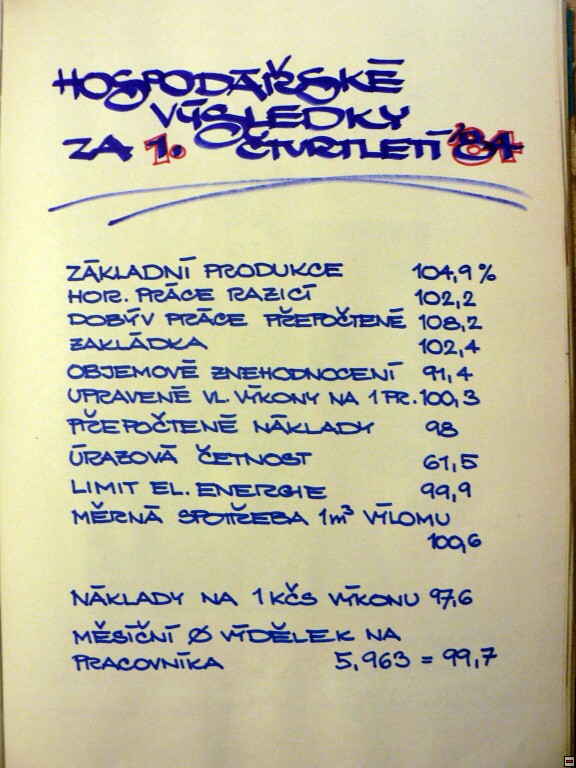 HOSPODÁŘSKÉ
VÝSLEDKY
ZA 1. ČTVRTLETÍ '84
ZÁKLADNÍ PRODUKCE 104,9 %
HOR. PRÁCE RAZICÍ 102,2
DOBÝV PRÁCE PŘEPOČTENÉ 108,2
ZAKLÁDKA 102,4
OBJEMOVÉ ZNEHODNOCENÍ 91,4
UPRAVENÉ VL. VÝKONY NA 1 PR. 100,3
PŘEPOČTENÉ NÁKLADY 98
ÚRAZOVÁ ČETNOST 61,5
LIMIT EL. ENERGIE 99,9
MĚRNÁ SPOTŘEBA 1m³ VÝLOMU
100,6
NÁKLADY NA 1 KČS VÝKONU 97,6
MĚSÍČNÍ Ø VÝDĚLEK NA
PRACOVNÍKA 5,963 = 99,7